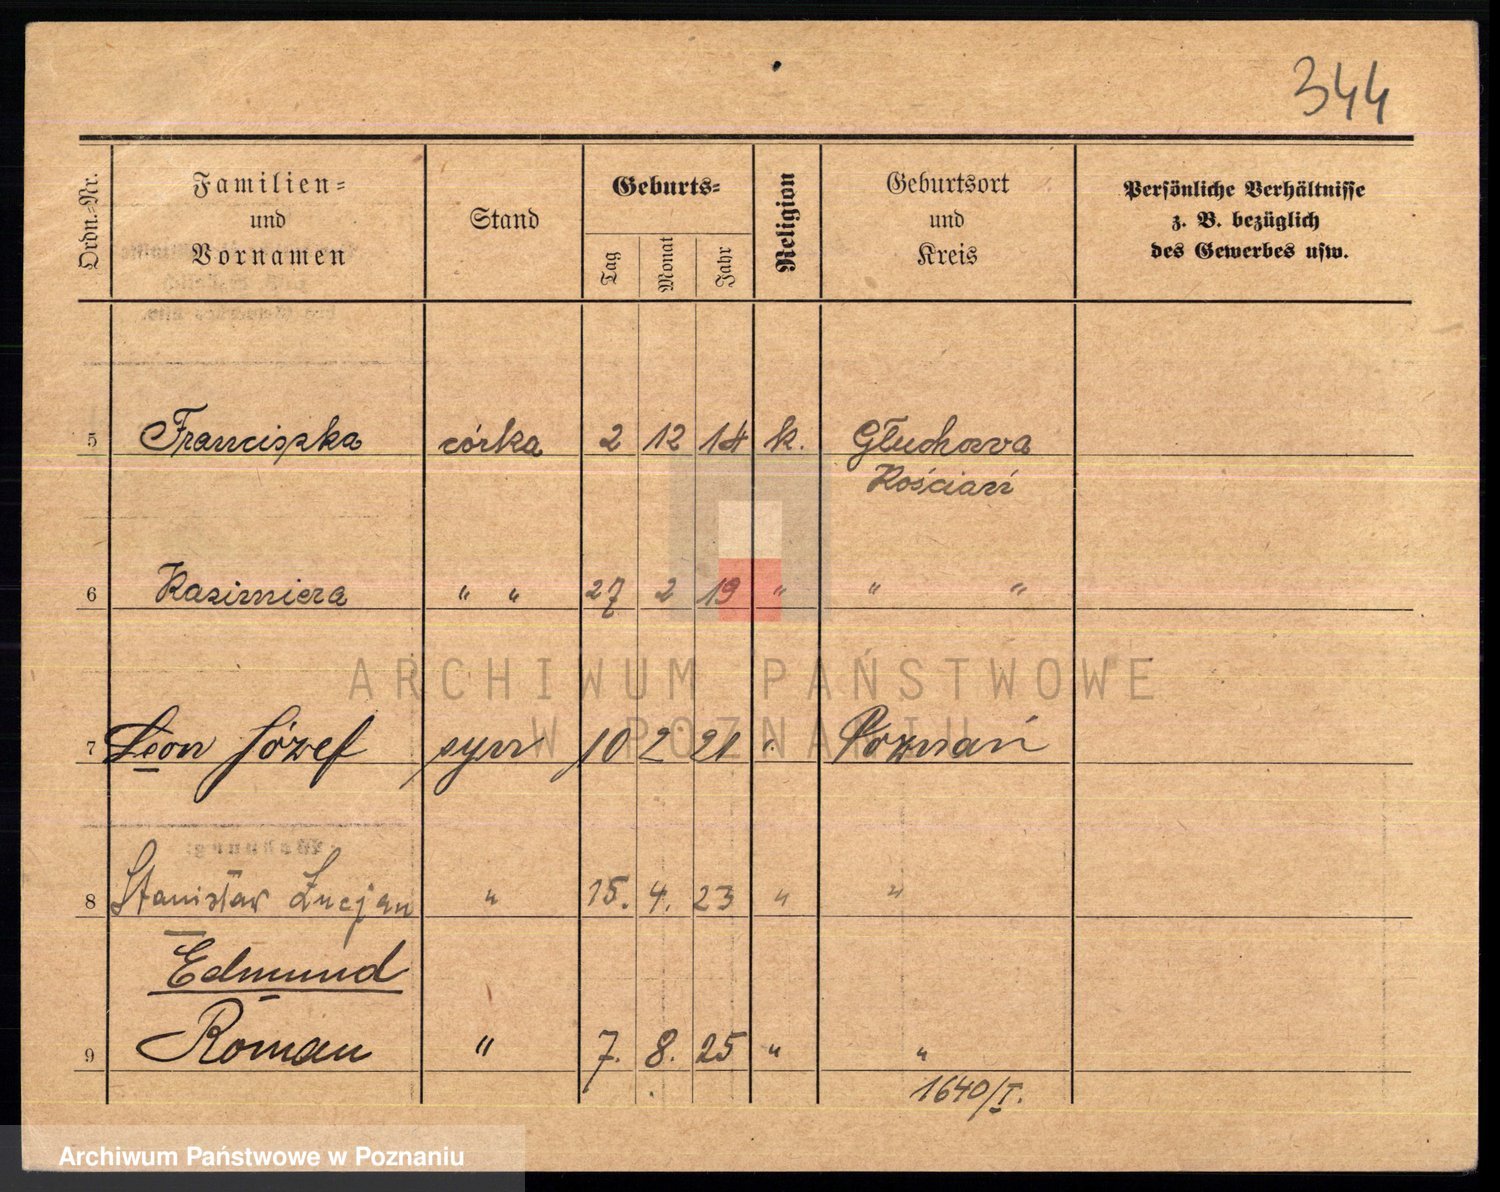 344
Ordn.-Nr.
Familien-
und
Vornamen
Stand
Geburts-
Tag
Monat
Jahr
Religion
Geburtsort
und
Kreis
Persönliche Verhältnisse
z. B. bezüglich
des Gewerbes usw.
5 Franciszka córka 2 12 14 k. Głuchowa
Kościań
6 Kazimiera " " 27 2 19 " " "
ARCHIWUM PAŃSTWOWE
W POZNANIU
7 Leon Józef syn 10 2 21 " Poznań
8 Stanisław Lucjan " 15. 4. 23 " "
Edmund
9 Roman " 7. 8. 25 " "
1640/I.
Archiwum Państwowe w Poznaniu